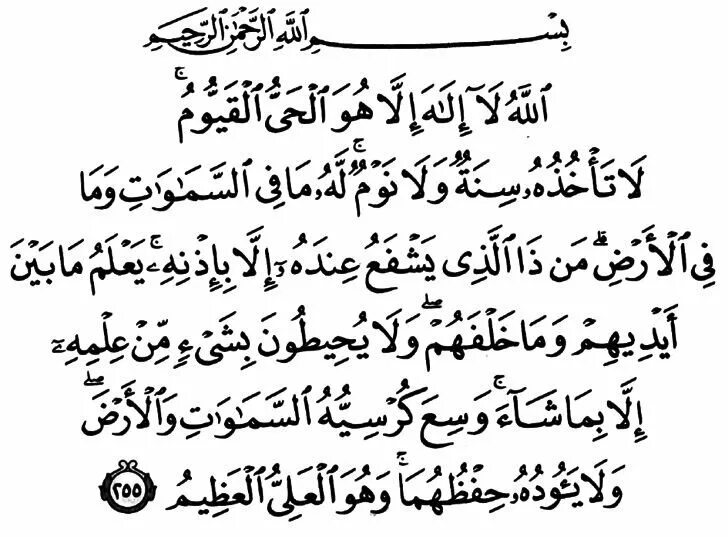 بِسْمِ اللَّهِ الرَّحْمَٰنِ الرَّحِيمِ
اللَّهُ لَآ إِلَٰهَ إِلَّا هُوَ الْحَىُّ الْقَيُّومُ ۚ
لَا تَأْخُذُهُۥ سِنَةٌ وَلَا نَوْمٌ ۚ لَّهُۥ مَا فِى السَّمَٰوَٰتِ وَمَا
فِى الْأَرْضِ ۗ مَن ذَا الَّذِى يَشْفَعُ عِندَهُۥٓ إِلَّا بِإِذْنِهِۦ ۚ يَعْلَمُ مَا بَيْنَ
أَيْدِيهِمْ وَمَا خَلْفَهُمْ ۖ وَلَا يُحِيطُونَ بِشَىْءٍ مِّنْ عِلْمِهِۦٓ
إِلَّا بِمَا شَآءَ ۚ وَسِعَ كُرْسِيُّهُ السَّمَٰوَٰتِ وَالْأَرْضَ ۖ
وَلَا يَـُٔودُهُۥ حِفْظُهُمَا ۚ وَهُوَ الْعَلِىُّ الْعَظِيمُ ٢٥٥